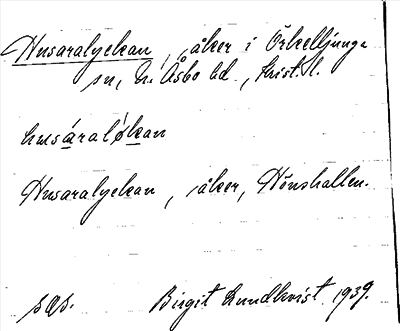 Husaralyckan, åker i Örkelljunga
sn, N. Åsbo hd, Krist. l.
husáralỏkan
Husaralyckan, åker, Hönshallen.
sqs. Birgit Lundkvist 1939.